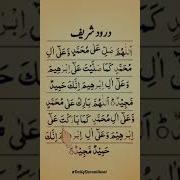 درود شریف
اَللّٰهُمَّ صَلِّ عَلٰى مُحَمَّدٍ وَّعَلٰٓى اٰلِ
مُحَمَّدٍ كَمَا صَلَّيْتَ عَلٰٓى اِبْرٰهِيْمَ
وَعَلٰٓى اٰلِ اِبْرٰهِيْمَ اِنَّكَ حَمِيْدٌ
مَّجِيْدٌ اَللّٰهُمَّ بَارِكْ عَلٰى مُحَمَّدٍ
وَّعَلٰٓى اٰلِ مُحَمَّدٍ كَمَا بَارَكْتَ عَلٰٓى
اِبْرٰهِيْمَ وَعَلٰٓى اٰلِ اِبْرٰهِيْمَ اِنَّكَ
حَمِيْدٌ مَّجِيْدٌ